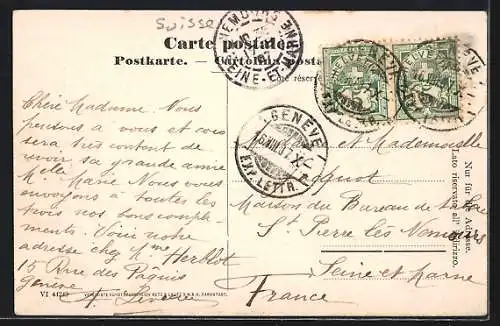 Suisse
Carte postale
Postkarte. — Cartolina posta
NEMOURS
SEINE-ET-MARNE
HELVETIA
HELVETIA
GENÈVE 1
EXP. LETTR.
réservé
Nur für die Adresse.
Lato riservato all' indirizzo.
Chère Madame. Nous
pensons à vous et
sera très content de
revoir sa grande amie
Mlle Marie Nous vous
envoyons à toutes les
trois nos bons compli-
ments. Voici notre
adresse chez Mme Herblot
15 Rue des Pâquis
Genève
et Mademoiselle
Maison du Bureau de
St Pierre les Nemours
Seine et Marne
France
VI 41